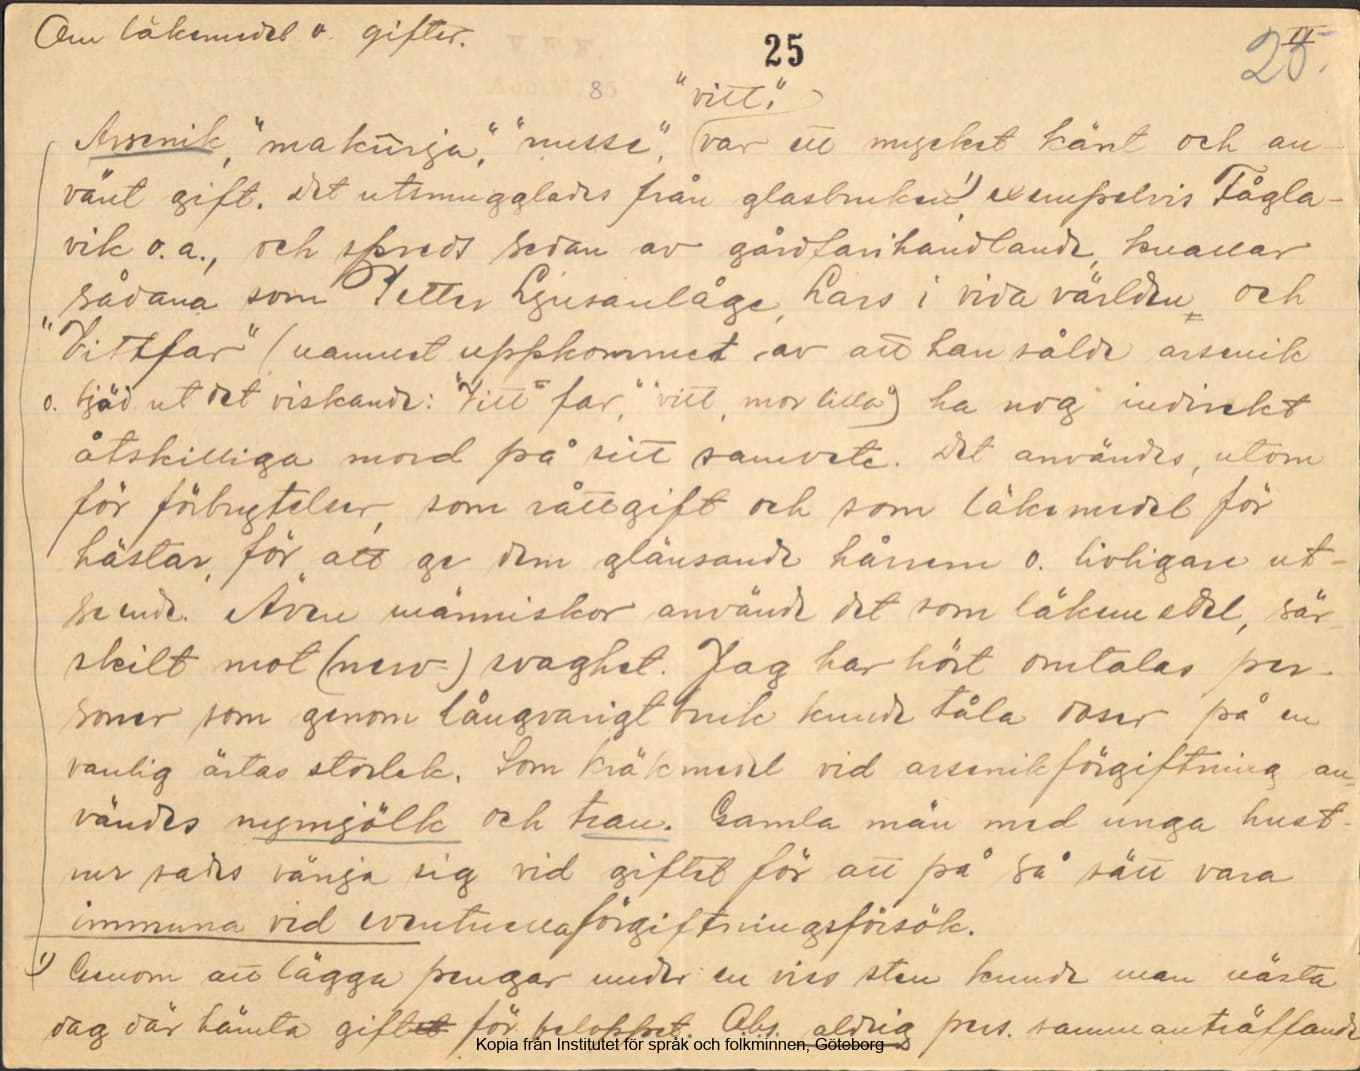 Om läkemedel o. gifter.
25
II
25.
V. F. F.
85
"vitt",
Arsenik, "makurja", "musse", var ett mycket känt och an-
vänt gift. Det utsmugglades från glasbruken 1) exempelvis Fågla-
vik o.a., och spreds sedan av gårdfarihandlande, knallar
sådana som Petter Ljusanlåge, Lars i vida världen, och
"Vittfar" (namnet uppkommet av att han sålde arsenik
o. bjöd ut det viskande: "Vitt far," "vitt, mor lilla") ha nog indirekt
åtskilliga mord på sitt samvete. Det användes, utom
för förbrytelser, som råttgift och som läkemedel för
hästar, för att ge dem glänsande hårrem o. livligare ut-
seende. Även människor använde det som läkemedel, sär-
skilt mot (nerv-) svaghet. Jag har hört omtalas per-
soner som genom långvarigt bruk kunde tåla doser på en
vanlig ärtas storlek. Som kräkmedel vid arsenikförgiftning an-
vändes nymjölk och tran. Gamla män med unga hust-
rur sades vänja sig vid giftet för att på så sätt vara
immuna vid eventuella förgiftningsförsök.
1) Genom att lägga pengar under en viss sten kunde man nästa
dag där hämta giftet för beloppet. Obs. aldrig pers. sammanträffande
Kopia från Institutet för språk och folkminnen, Göteborg